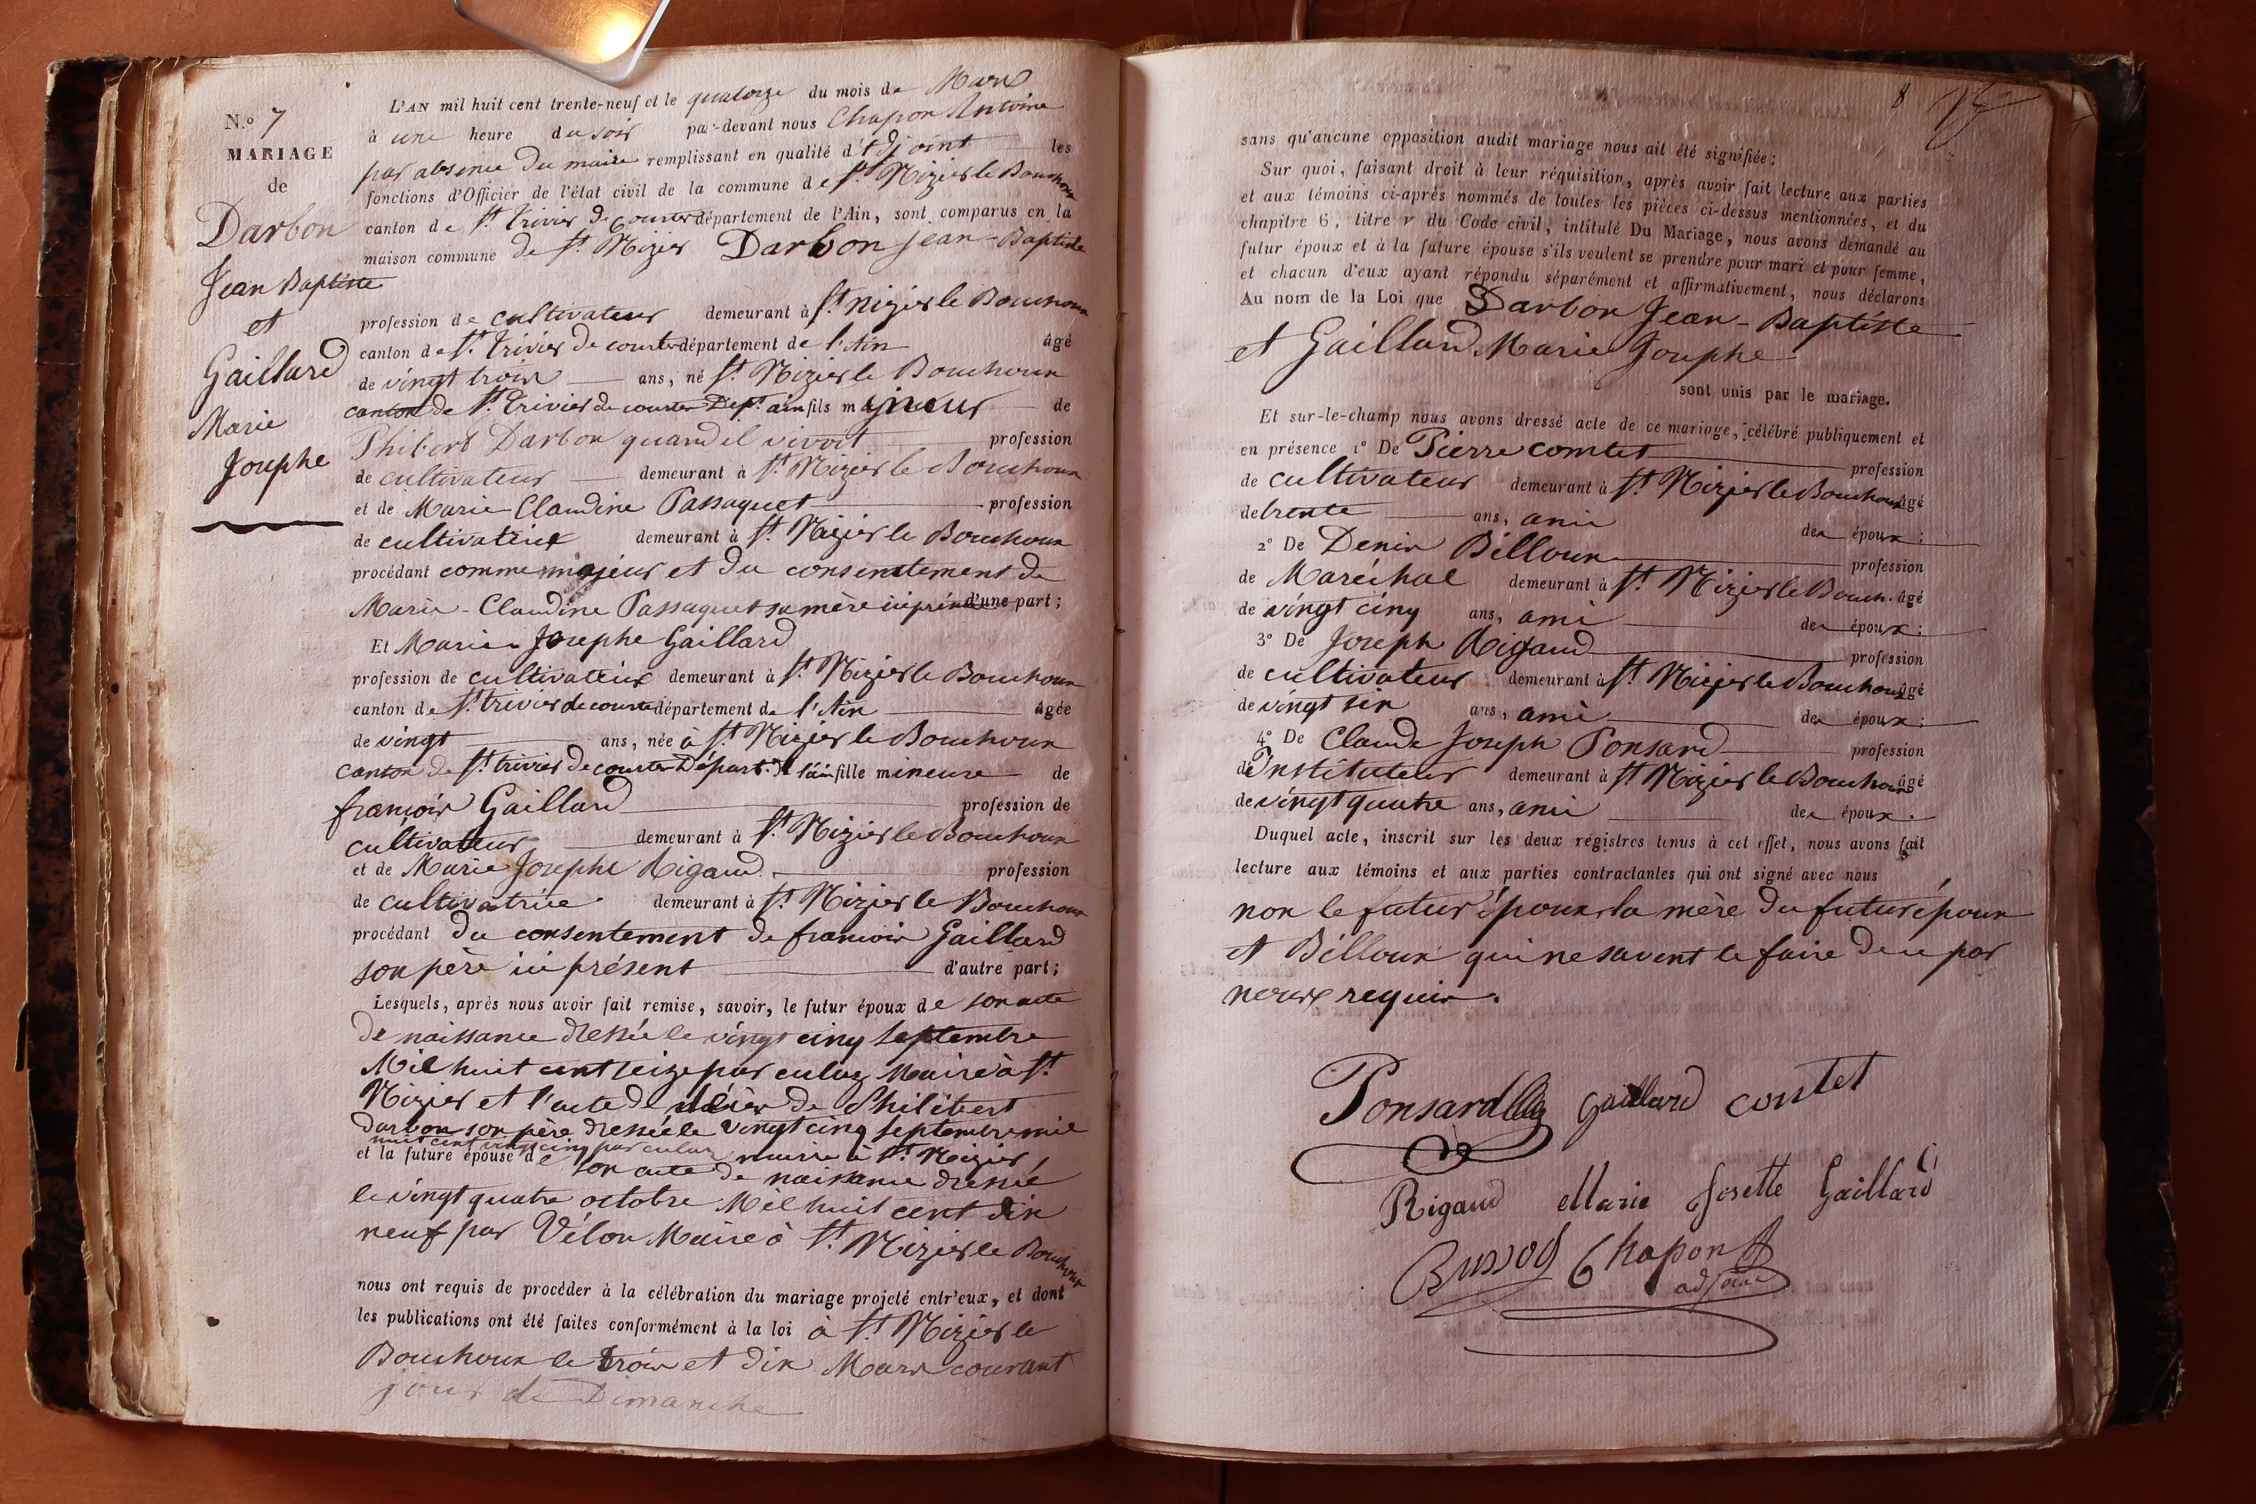 N.º 7
MARIAGE
de
Darbon
Jean Baptiste
et
Gaillard
Marie
Josephe
L'AN mil huit cent trente-neuf et le quatorze du mois de Mars
à une heure du soir par-devant nous Chapon Antoine
par absence du maire remplissant en qualité d'Adjoint les
fonctions d'Officier de l'état civil de la commune de St. Nizier le Bouchoux
canton de St. Trivier de Courtes département de l'Ain, sont comparus en la
maison commune de St. Nizier Darbon Jean-Baptiste
profession de cultivateur demeurant à St. Nizier le Bouchoux
canton de St. Trivier de courtes département de l'Ain âgé
de vingt trois ans, né St. Nizier le Bouchoux
canton de St. Trivier de courtes Dept. ain fils majeur de
Philibert Darbon quand il vivoit profession
de cultivateur demeurant à St. Nizier le Bouchoux
et de Marie Claudine Passaquet profession
de cultivatrice demeurant à St. Nizier le Bouchoux
procédant comme majeur et du consentement de
Marie-Claudine Passaquet sa mère ici présente d'une part;
Et Marie Josephe Gaillard
profession de cultivatrice demeurant à St. Nizier le Bouchoux
canton de St. trivier de courtes département de l'Ain âgée
de vingt ans, née à St. Nizier le Bouchoux
canton de St. trivier de courtes Départ. de l'ain fille mineure de
françois Gaillard profession de
cultivateur demeurant à St. Nizier le Bouchoux
et de Marie Josephe Rigaud profession
de cultivatrice demeurant à St. Nizier le Bouchoux
procédant du consentement de françois Gaillard
son père ici présent d'autre part;
Lesquels, après nous avoir fait remise, savoir, le futur époux de son acte
de naissance dressé le vingt cinq Septembre
Mil huit cent seize par culaz Maire à St.
Nizier et l'acte de décès de Philibert
darbon son père dressé le vingt cinq septembre mil
huit cent vingt cinq par culaz maire à St. Nizier
et la future épouse de son acte de naissance dressé
le vingt quatre octobre Mil huit cent dix
neuf par Vélon Maire à St. Nizier le Bouchoux
nous ont requis de procéder à la célébration du mariage projeté entr'eux, et dont
les publications ont été faites conformément à la loi à St. Nizier le
Bouchoux le trois et dix Mars courant
jour de Dimanche
8
sans qu'aucune opposition audit mariage nous ait été signifiée;
Sur quoi, faisant droit à leur réquisition, après avoir fait lecture aux parties
et aux témoins ci-après nommés de toutes les pièces ci-dessus mentionnées, et du
chapitre 6, titre v du Code civil, intitulé Du Mariage, nous avons demandé au
futur époux et à la future épouse s'ils veulent se prendre pour mari et pour femme,
et chacun d'eux ayant répondu séparément et affirmativement, nous déclarons
Au nom de la Loi que Darbon Jean-Baptiste
et Gaillard Marie Josephe
sont unis par le mariage.
Et sur-le-champ nous avons dressé acte de ce mariage, célébré publiquement et
en présence 1º De Pierre comtet profession
de cultivateur demeurant à St. Nizier le Bouchoux âgé
de trente ans, ami des époux;
2º De Denis Billoux profession
de Maréchal demeurant à St. Nizier le Bouch. âgé
de vingt cinq ans, ami des époux;
3º De Joseph Rigaud profession
de cultivateur demeurant à St. Nizier le Bouchoux âgé
de vingt six ans, ami des époux;
4º De Claude Joseph Ponsard profession
de Instituteur demeurant à St Nizier le Bouchoux âgé
de vingt quatre ans, ami des époux.
Duquel acte, inscrit sur les deux régistres tenus à cet effet, nous avons fait
lecture aux témoins et aux parties contractantes qui ont signé avec nous
non le futur époux, la mère du futur époux
et Billoux qui ne savent le faire de ce par
nous requis.
Ponsard Gaillard comtet
Rigaud Marie Josette Gaillard
Chapon
adjoint